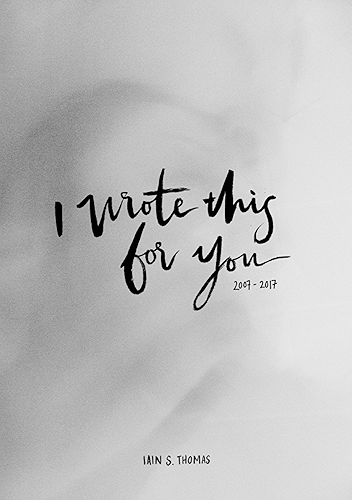 I wrote this
for you
2007 - 2017
IAIN S. THOMAS